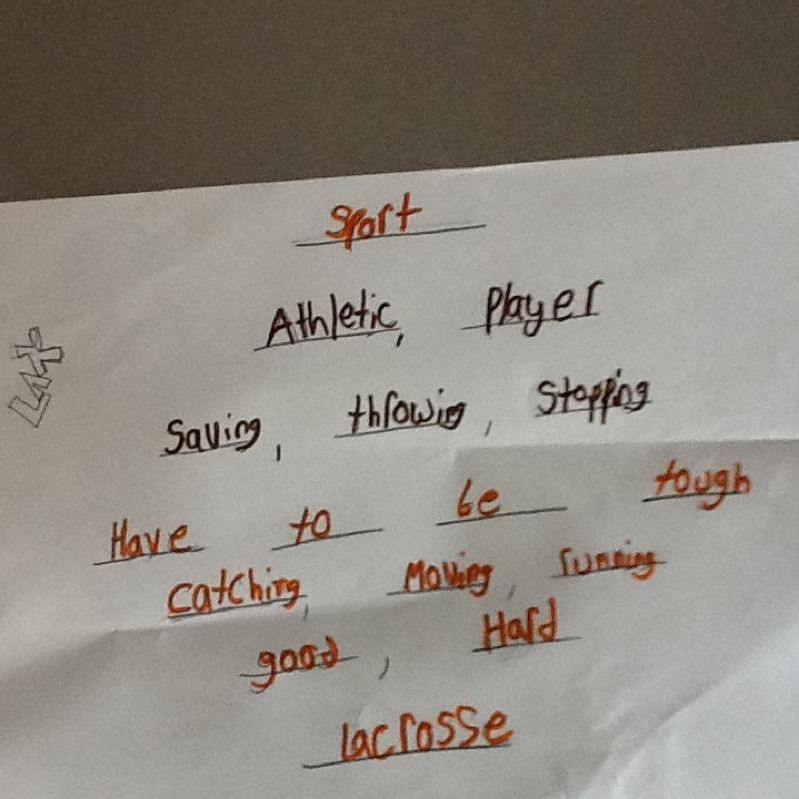 Sport
Athletic, Player
Saving, throwing, Stopping
Have to be tough
Catching, Moving, running
good, Hard
lacrosse